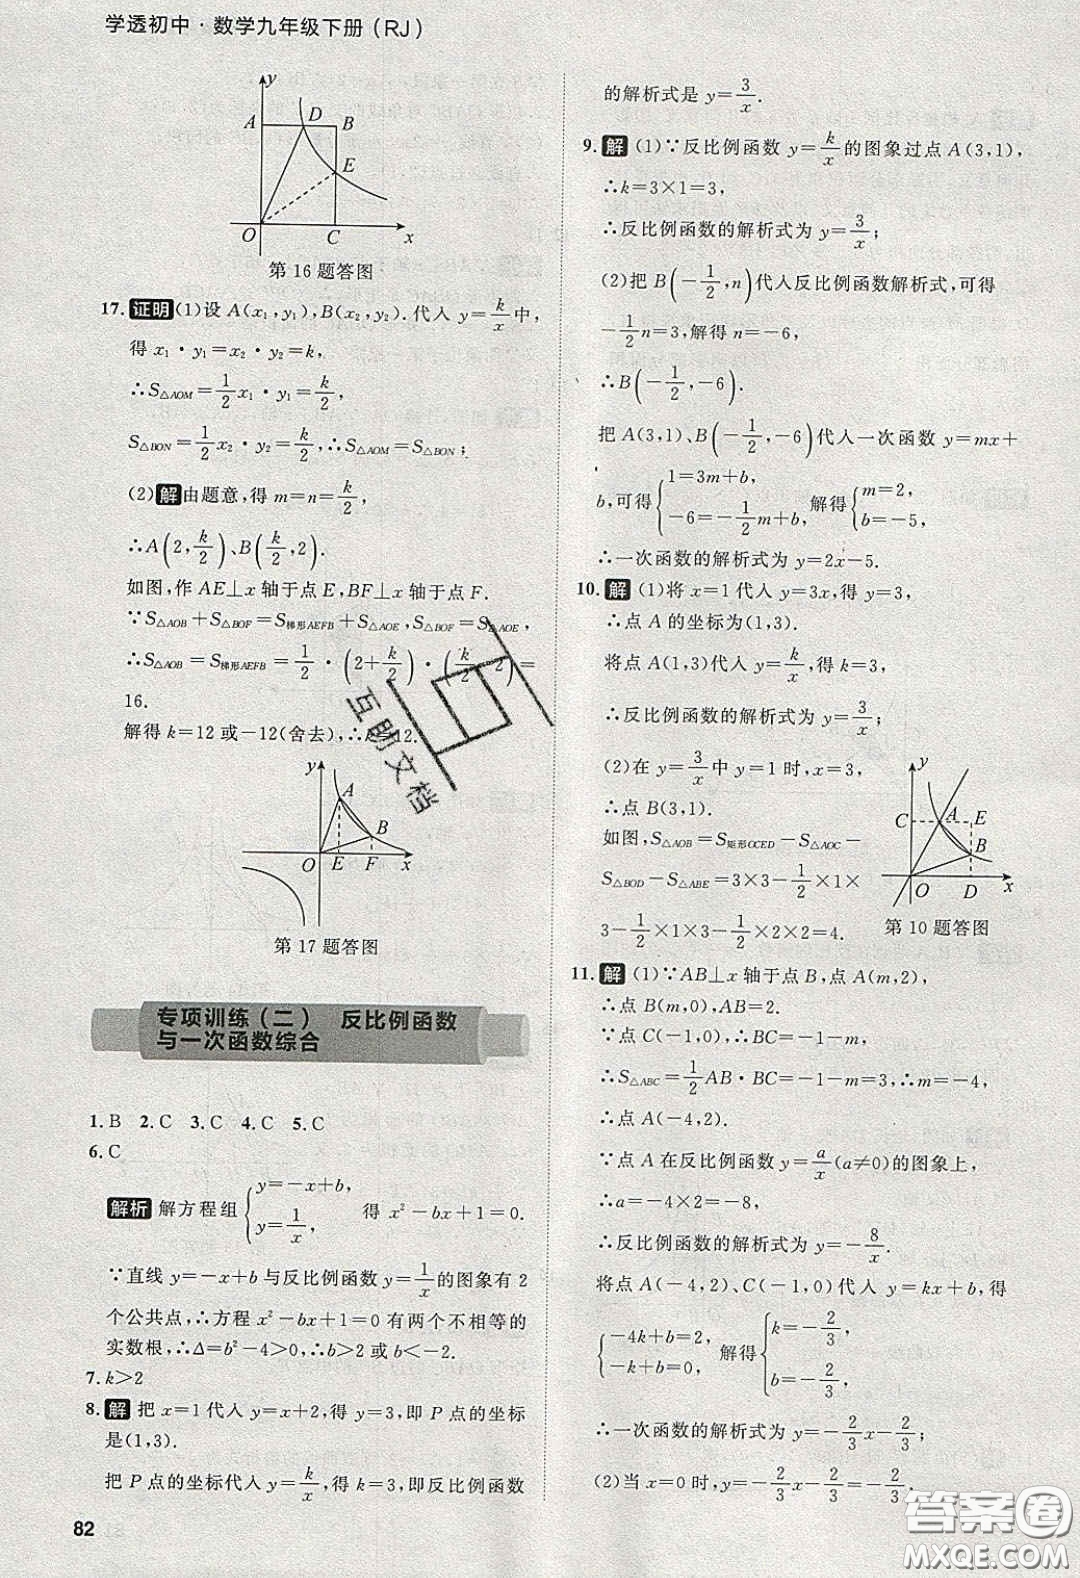 学透初中·数学九年级下册(RJ)
y
A D B
E
O C x
第16题答图
17.证明(1)设 A(x₁,y₁),B(x₂,y₂).代人 y=k/x 中,
得 x₁·y₁=x₂·y₂=k,
∴S△AOM=1/2 x₁·y₁=k/2,
S△BON=1/2 x₂·y₂=k/2,∴S△AOM=S△BON;
(2)解 由题意,得 m=n=k/2,
∴A(2,k/2)、B(k/2,2).
如图,作 AE⊥x 轴于点 E,BF⊥x 轴于点 F.
∵S△AOB+S△BOF=S梯形AEFB+S△AOE,S△BOF=S△AOE,
∴S△AOB=S梯形AEFB=1/2·(2+k/2)·(k/2-2)=
16.
解得 k=12 或-12(舍去),∴k=12.
y
A
B
O E F x
第17题答图
专项训练(二) 反比例函数
与一次函数综合
1.B 2.C 3.C 4.C 5.C
6.C
解析 解方程组{y=-x+b, y=1/x, 得 x²-bx+1=0.
∵直线 y=-x+b 与反比例函数 y=1/x 的图象有 2
个公共点,∴方程 x²-bx+1=0 有两个不相等的
实数根,∴Δ=b²-4>0,∴b>2 或 b<-2.
7.k>2
8.解 把 x=1代人 y=x+2,得 y=3,即 P 点的坐标
是(1,3).
把 P 点的坐标代人 y=k/x,得 k=3,即反比例函数
82
的解析式是 y=3/x.
9.解 (1)∵反比例函数 y=k/x 的图象过点 A(3,1),
∴k=3×1=3,
∴反比例函数的解析式为 y=3/x;
(2)把 B(-1/2,n)代人反比例函数解析式,可得
-1/2 n=3,解得 n=-6,
∴B(-1/2,-6).
把 A(3,1)、B(-1/2,-6)代人一次函数 y=mx+
b,可得{1=3m+b, -6=-1/2 m+b, 解得{m=2, b=-5,
∴一次函数的解析式为 y=2x-5.
10.解 (1)将 x=1代人 y=3x,得 y=3,
∴点 A 的坐标为(1,3).
将点 A(1,3)代人 y=k/x,得 k=3,
∴反比例函数的解析式为 y=3/x;
(2)在 y=3/x 中 y=1 时,x=3,
∴点 B(3,1).
如图,S△AOB=S矩形OCED-S△AOC-
S△BOD-S△ABE=3×3-1/2×1×
3-1/2×1×3-1/2×2×2=4.
y
C A E
B
O D x
第10题答图
11.解 (1)∵AB⊥x 轴于点 B,点 A(m,2),
∴点 B(m,0),AB=2.
∵点 C(-1,0),∴BC=-1-m,
∴S△ABC=1/2 AB·BC=-1-m=3,∴m=-4,
∴点 A(-4,2).
∵点 A 在反比例函数 y=a/x(a≠0)的图象上,
∴a=-4×2=-8,
∴反比例函数的解析式为 y=-8/x.
将点 A(-4,2)、C(-1,0)代人 y=kx+b,得
{-4k+b=2, -k+b=0, 解得{k=-2/3, b=-2/3.
∴一次函数的解析式为 y=-2/3 x-2/3.
(2)当 x=0 时,y=-2/3 x-2/3=-2/3,
互助文档
答案圈
MXQE.COM